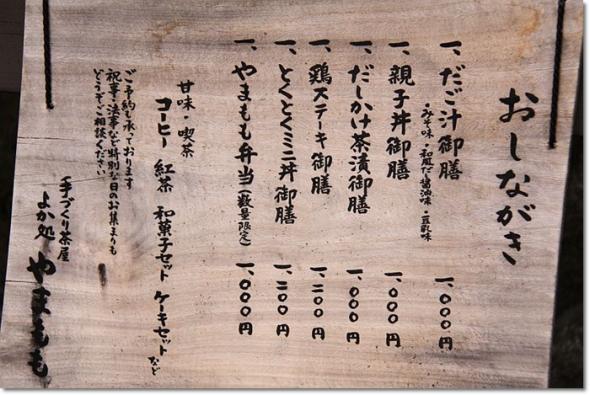 おしながき
一、だご汁御膳 一、〇〇〇円
・みそ味 ・和風だし醤油味 ・豆乳味
一、親子丼御膳 一、〇〇〇円
一、だしかけ茶漬御膳 一、〇〇〇円
一、鶏ステーキ御膳 一、二〇〇円
一、とくとくミニ丼御膳 一、二〇〇円
一、やまもも弁当(数量限定) 一、〇〇〇円
甘味・喫茶
コーヒー 紅茶 和菓子セット ケーキセット など
ご予約も承っております
祝事・法事など特別な日のお集まりも
どうぞご相談ください
手づくり茶屋
よか処 やまもも